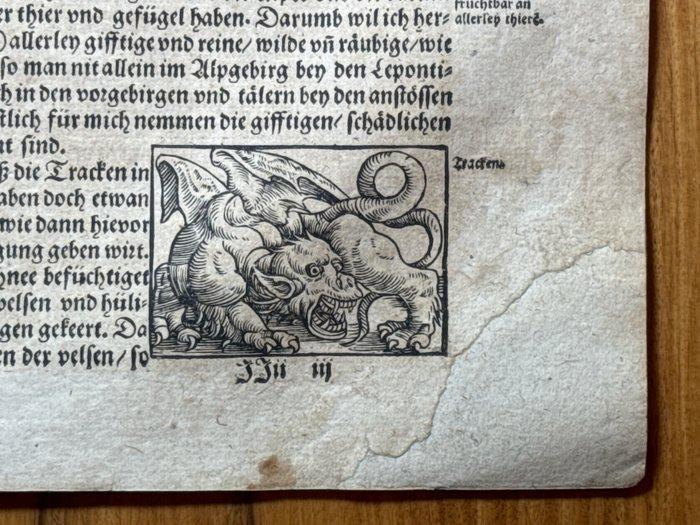 fruchtbar an
allerley thierē.
er thier vnd gefügel haben. Darumb wil ich her⸗
allerley gifftige vnd reine/ wilde vñ räubige/wie
so man nit allein im Alpgebirg bey den Leponti⸗
h in den vorgebirgen vnd tälern bey den anstössen
tlich für mich nemmen die gifftigen/ schädlichen
t sind.
Tracken.
ß die Tracken in
aben doch etwan
wie dann hievor
gung geben wirt.
hnee befüchtiget
velsen vnd hüli⸗
gen gekeert. Da
en der velsen/ so
JJii iij